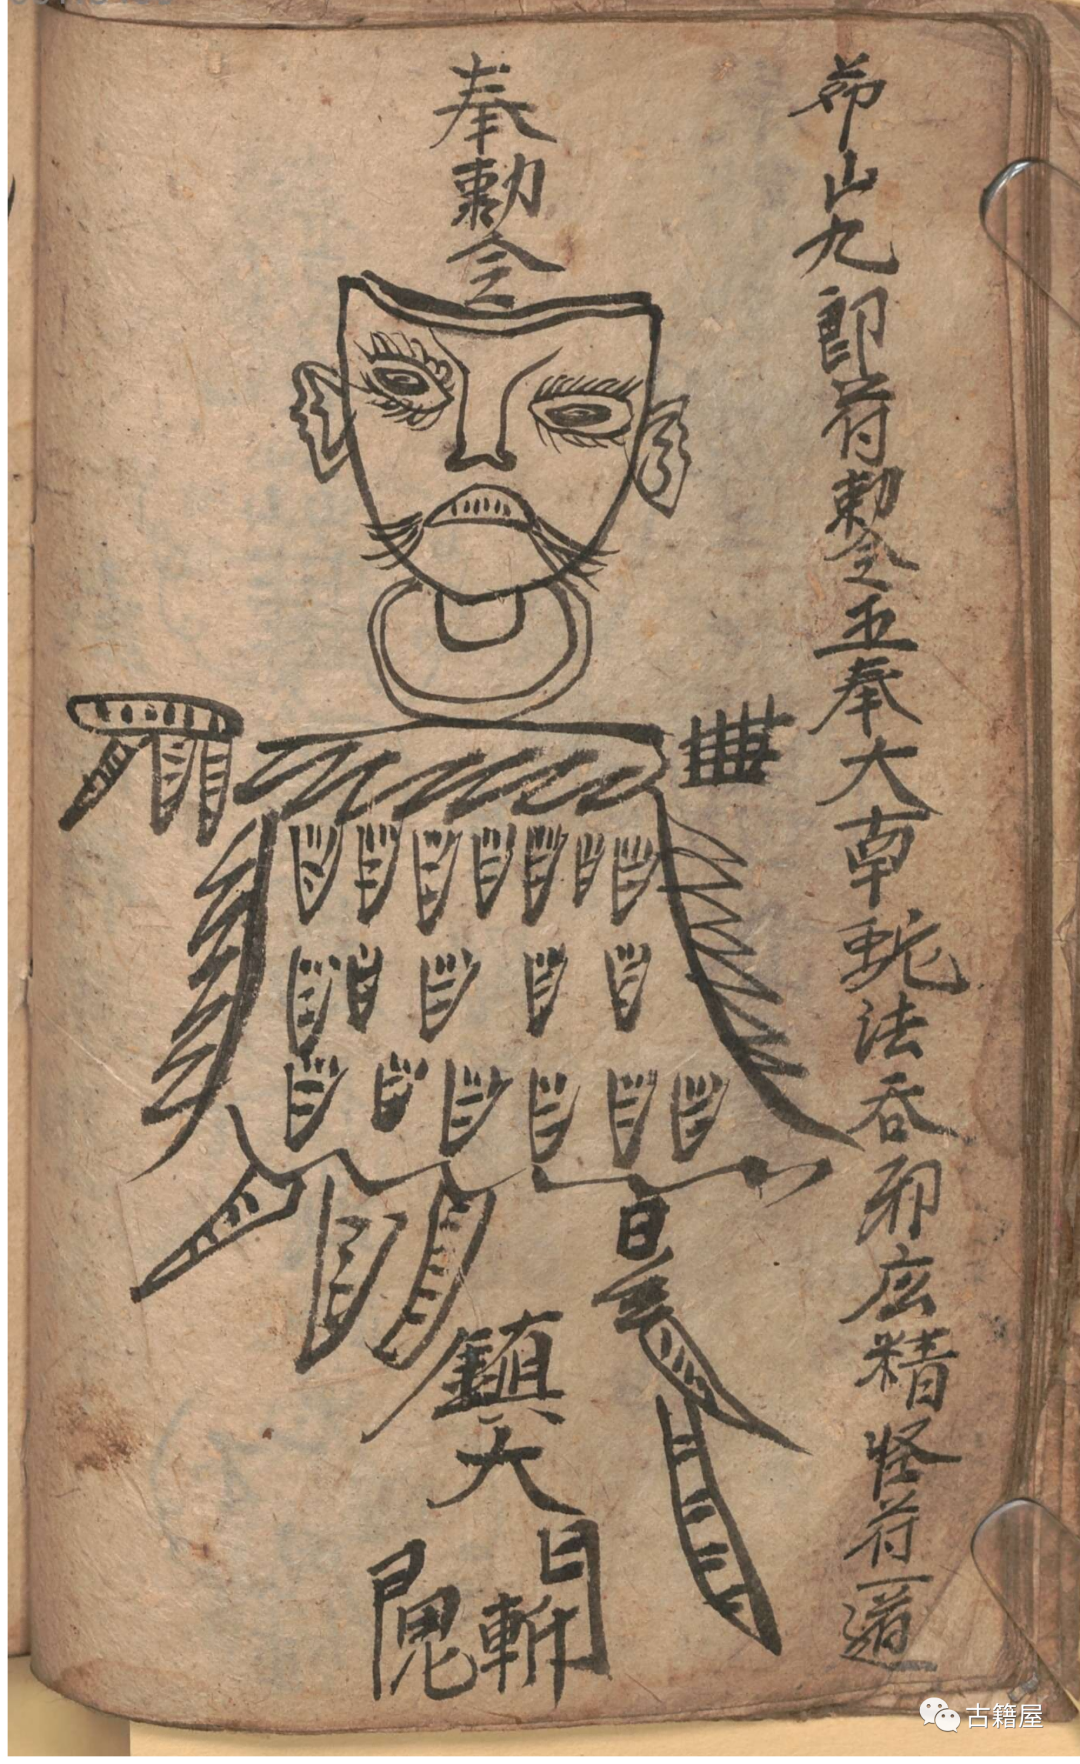 茆山九郎符勅令五奉大南蛇法吞邪庅精怪符一道
奉勅令
日
鎮
大
斬
鬼
古籍屋